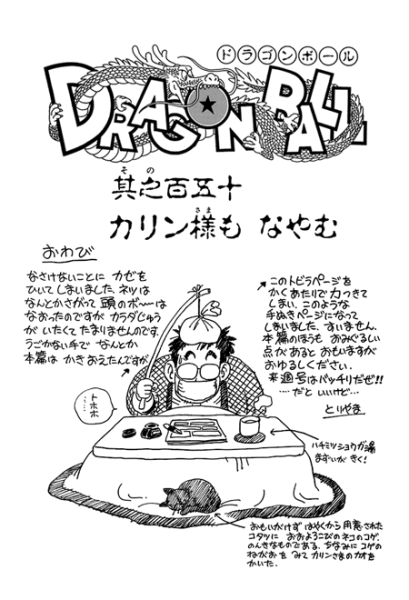 ドラゴンボール
DRAGON BALL
其之百五十
その
カリン様も なやむ
さま
おわび
なさけないことに カゼを
ひいてしまいました。ネツは
なんとかさがって 頭のボ〜〜は
なおったのですが カラダじゅう
が いたくて たまりませんのです。
うごかない手で なんとか
本篇は かきおえたんですが
このトビラページを
かくあたりで 力つきて
しまい、このような
手ぬきページになって
しまいました。すいません。
本篇のほうも おみぐるしい
点があると おもいますが
おゆるしください。
来週号はバッチリだぜ!!
‥‥だと いいけど‥‥
とりやま
トホホ
‥‥。
ハチミツショウガ湯
まずいが きく!
おもいがけず はやくから 用意された
コタツに おおよろこびの ネコのコゲ。
のんきなものである。ちなみに コゲの
ねがおを みて カリンさまの カオを
かいた。